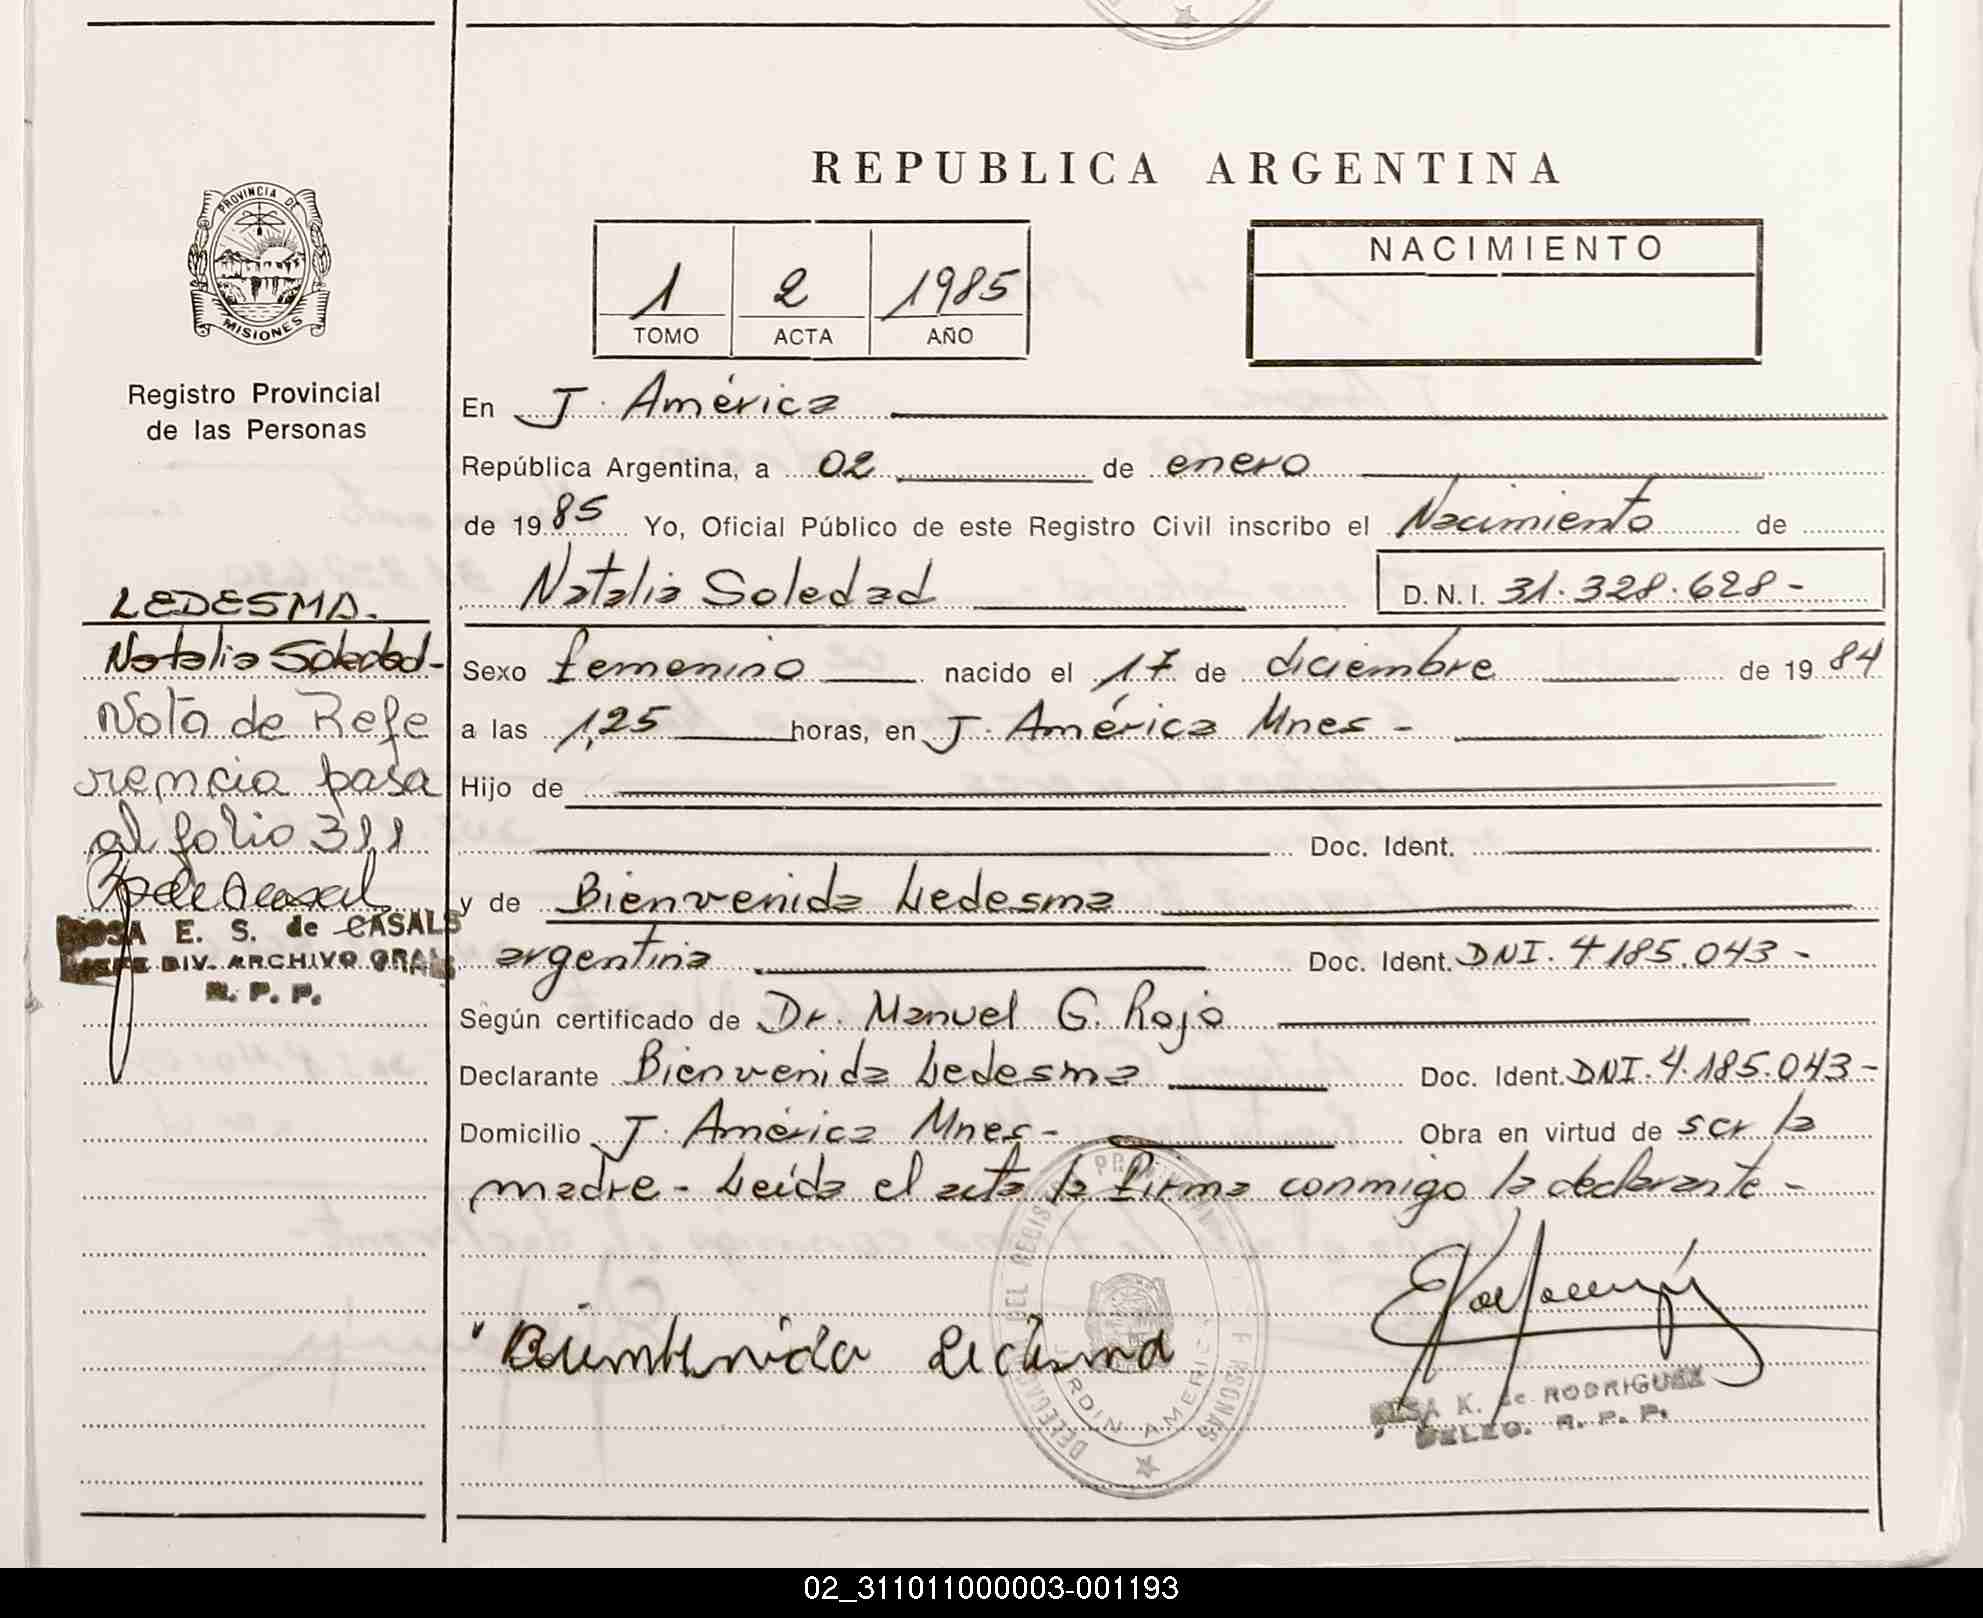 REPUBLICA ARGENTINA
PROVINCIA DE
MISIONES
Registro Provincial
de las Personas
1 2 1985
TOMO ACTA AÑO
NACIMIENTO
En J. América
República Argentina, a 02 de enero
de 1985 Yo, Oficial Público de este Registro Civil inscribo el Nacimiento de
Natalia Soledad D.N.I. 31.328.628-
Sexo femenino nacido el 17 de diciembre de 1984
a las 1,25 horas, en J. América Mnes-
Hijo de
Doc. Ident.
y de Bienvenida Ledesma
argentina Doc. Ident. DNI. 4185.043-
Según certificado de Dr. Manuel G. Rojo
Declarante Bienvenida Ledesma Doc. Ident. DNI. 4.185.043-
Domicilio J. América Mnes- Obra en virtud de ser la
madre- Leída el acta la firma conmigo la declarante-
LEDESMA.
Natalia Soledad-
Nota de Refe
rencia pasa
al folio 311
ROSA E. S. de CASALS
JEFE DIV. ARCHIVO GRAL
R. P. P.
Bienvenida Ledesma
DEL REGIS PERSONAS
JARDIN AMERICA
K. de RODRIGUEZ
DELEG. R. P. P.
02_311011000003-001193